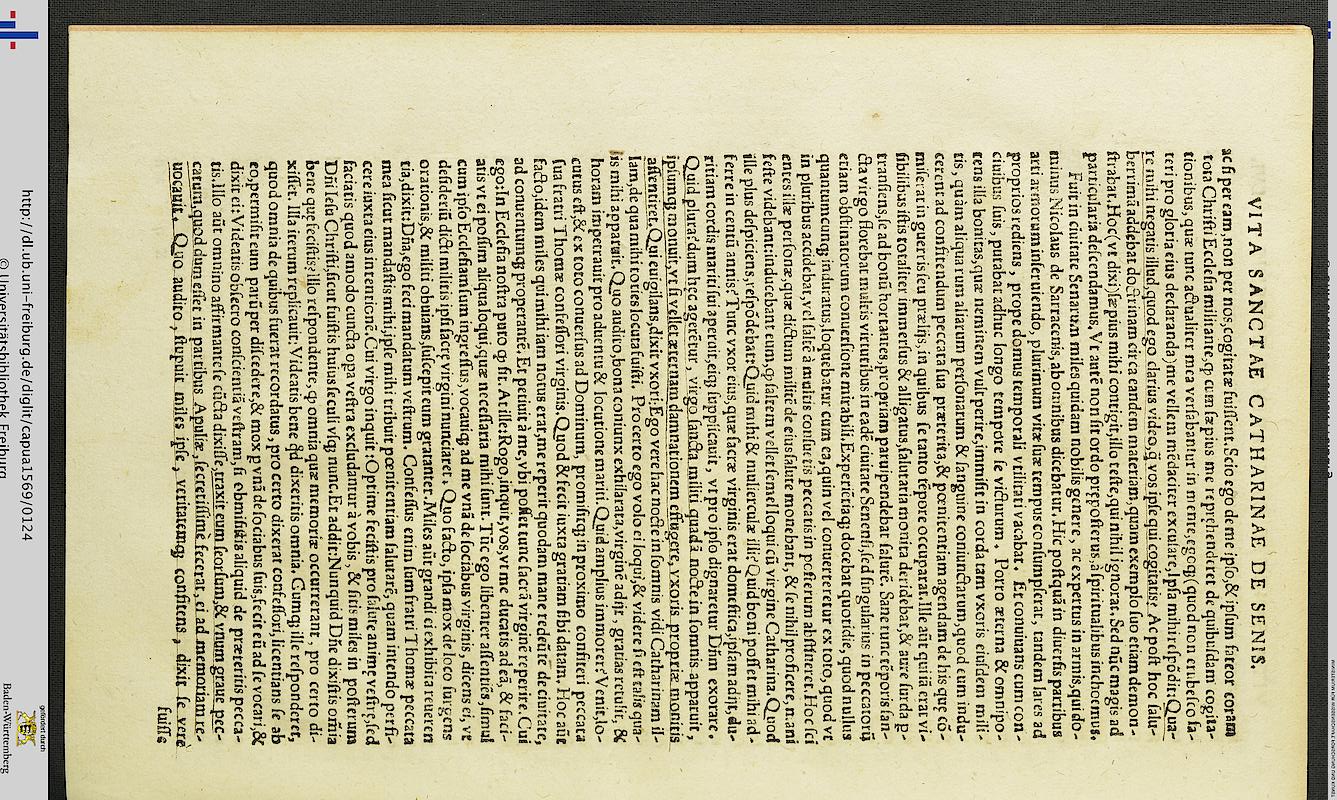 VITA SANCTAE CATHARINAE DE SENIS.
ac si per eam, non per nos, cogitatę fuissent. Scio ego de me ipso, & ipsum fateor coram
tota Christi Ecclesia militante, ꝙ cum sæpius me reprehenderet de quibusdam cogita-
tionibus, quæ tunc actualiter mea versabantur in mente, egoq́;
re mihi negatis illud, quod ego clarius video, ꝙ̃ vos ipse qui cogitatis? Ac post hoc salu-
berrimā addebat doctrinam circa eandem materiam, quam exemplo suo etiam demon-
strabat. Hoc (vt dixi) sæpius mihi contigit, illo teste, qui nihil ignorat. Sed nūc magis ad
particularia descendamus, Vt autē non sit ordo pręposterus, à spiritualibus inchoemus.
Fuit in ciuitate Senarum miles quidam nobilis genere, ac expertus in armis, qui do-
minus Nicolaus de Sarracenis, ab omnibus dicebatur. Hic postquā in diuersis partibus
arti armorum inseruiendo, plurimum vitæ suæ tempus consumpserat, tandem lares ad
proprios rediens, prope domus temporali vtilitati vacabat. Et conuiuans cum con-
ciuibus suis, putabat adhuc longo tempore se victurum. Porro æterna & omnipo-
tens illa bonitas, quæ neminem vult perire, immisit in corda tam vxoris eiusdem mili-
tis, quàm aliquarum aliarum personarum & sanguine coniunctarum, quod eum indu-
cerent ad confitendum peccata sua præterita, & pœnitentiam agendam de his quę cō-
miserat in guerris seu præijs, in quibus se tanto tēpore occuparat. Ille aūt quia erat vi-
sibilibus istis totaliter immersus & alligatus, salutaria monita deridebat, & aure surda ꝑ-
transiens, se ad bonū hortantes, propriam paruipendebat salutē. Sane tunc tēporis san-
cta virgo florebat multis virtutibus in eadē ciuitate Senensi, sed singularius in peccatorū
etiam obstinatorum conuersione mirabili. Experiētiaq́; docebat quotidie, quod nullus
quantumcunq; induratus, loquebatur cum ea, quin vel conuerteretur ex toto, quod vt
in pluribus accidebat, vel saltē à multis consuetis peccatis in posterum abstineret. Hoc sci
entes illæ personæ, quæ dictum militē de eius salute monebant, & se nihil proficere, mani
feste videbant: inducebant eum, ꝙ saltem vellet semel loqui cū virgine Catharina. Quod
ille plus despiciens, respōdebat: Quid mihi & mulierculæ illi? Quid boni posset mihi ad-
ferre in centū annis? Tunc vxor eius, quæ sacræ virginis erat domestica, ipsam adijt, du-
ritiam cordis mariti sui aperuit, eiq; supplicauit, vt pro ipso dignaretur Dn̄m exorare.
Quid plura? dum hęc ageretur, virgo sancta militi quadā nocte in somnis apparuit,
ipsumq; monuit, vt si vellet æternam damnationem effugere, vxoris propriæ monitis
assentiret. Qui euigilans, dixit vxori: Ego vere hac nocte in somnis vidi Catharinam il-
lam, de qua mihi toties locuta fuisti. Pro certo ego volo ei loqui, & videre si est talis qua-
lis mihi apparuit. Quo audito, bona coniunx exhilarata, virginē adijt, gratias retulit, &
horam impetrauit pro aduentu & locutione mariti. Quid amplius immorer: Venit, lo-
cutus est, & ex toto conuersus ad Dominum, promisitq; in proximo confiteri peccata
sua fratri Thomæ confessori virginis. Quod & fecit iuxta gratiam sibi datam. Hoc aūt
facto, idem miles qui mihi iam notus erat, me reperit quodam mane redeūte de ciuitate,
ad conuentumq; properantē. Et petiuit à me, vbi posset tunc sacrā virginē reperire. Cui
ego: In Ecclesia nostra puto ꝙ sit. At ille: Rogo, inquit, vos, vt me ducatis ad eā, & faci-
atis vt ei possim aliqua loqui, quæ necessaria mihi sunt. Tūc ego libenter assentiēs, simul
cum ipso Ecclesiam sum ingressus, vocauiq; ad me vnā de sociabus virginis, dicens ei, vt
desideriū dicti militis ipsi sacrę virgini nunciaret. Quo facto, ipsa mox de loco surgens
orationis & militi obuians, suscepit eum gratanter. Miles aūt grandi ei exhibita reueren
tia, dixit: Dn̄a, ego feci mandatum vestrum. Confessus enim sum fratri Thomæ peccata
mea sicut mandastis mihi, ipse mihi tribuit pœnitentiam salutarē, quam intendo perfi-
cere iuxta eius intentionē. Cui virgo inquit: Optime fecistis pro salute animę vestrę, sed
faciatis quod amodo cuncta opa vestra excludantur à vobis, & sitis miles in posterum
Dn̄i Iesu Christi, sicut fuistis huius seculi vsq; nunc. Et addit: Nunquid Dn̄e dixistis om̄ia
bene quę fecistis? illo respondente, ꝙ omnia quæ memoriæ occurrerant, pro certo di-
xisset. Illa iterum replicauit: Videatis bene ꝙđ dixeritis omnia. Cumq́; ille responderet,
quod omnia de quibus fuerat recordatus, pro certo dixerat confessori, licentians se ab
eo, permisit eum parū per discedere, & mox ꝑ vnā de sociabus suis, fecit eū ad se vocari, &
dixit ei: Videatis obsecro conscientiā vestram, si obmisistis aliquid de præteritis pecca-
tis. Illo aūt omnino affirmante se cūcta dixisse, traxit eum seorsum, & vnum graue pec-
catum, quod dum esset in partibus Apuliæ, secretissime fecerat, ei ad memoriam re-
uocauit. Quo audito, stupuit miles ipse, veritatemq; confitens, dixit se vere
fuisse
http://dl.ub.uni-freiburg.de/diglit/capua1569/0124
© Universitätsbibliothek Freiburg
gefördert durch
Baden-Württemberg